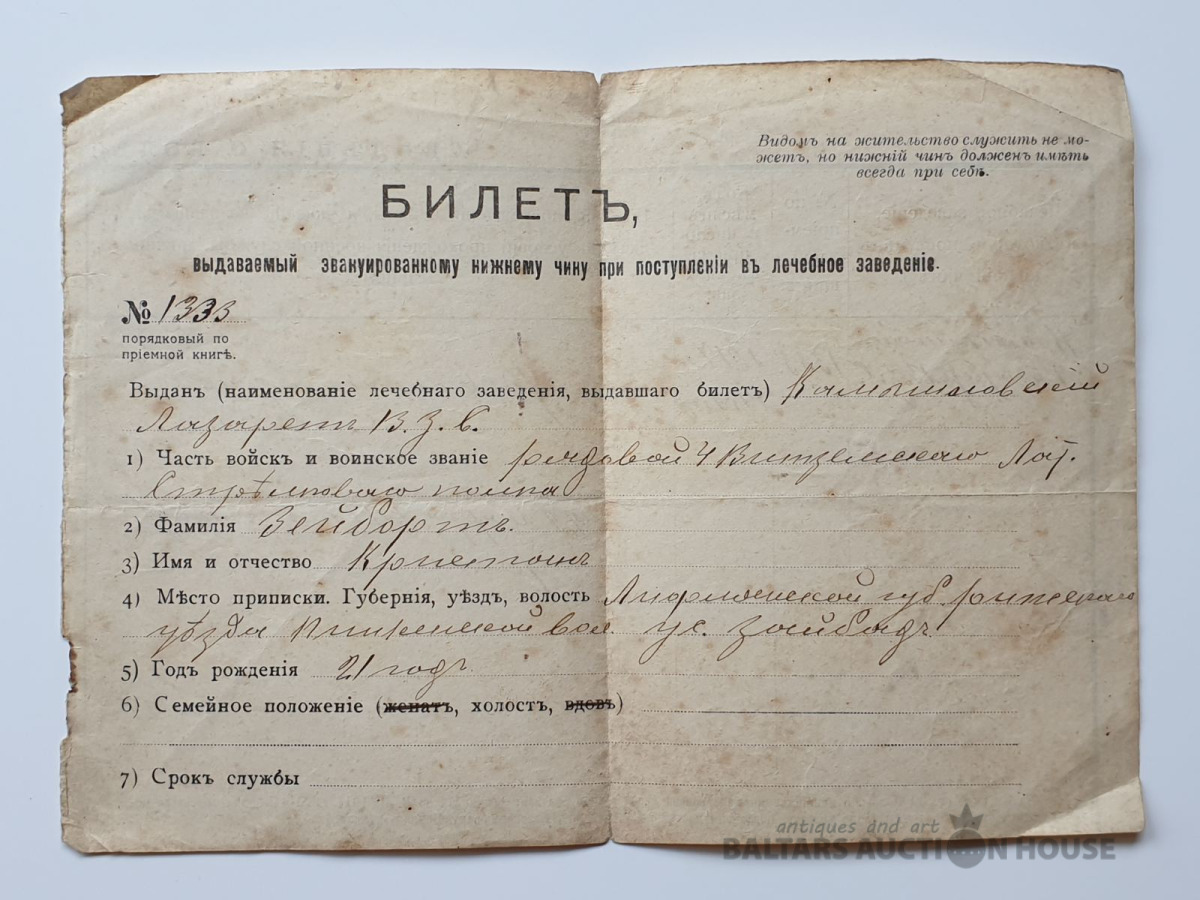 Видомъ на жительство служить не мо-
жетъ, но нижній чинъ долженъ имѣть
всегда при себѣ.
БИЛЕТЪ,
выдаваемый эвакуированному нижнему чину при поступленіи въ лечебное заведеніе.
№ 1333
порядковый по
пріемной книгѣ.
Выданъ (наименованіе лечебнаго заведенія, выдавшаго билетъ) Камышловскій
Лазаретъ В.З.С.
1) Часть войскъ и воинское званіе рядовой 4 Лат.
Стрѣлковаго полка
2) Фамилія Зейбортъ.
3) Имя и отчество Кристапъ
4) Мѣсто приписки. Губернія, уѣздъ, волость Лифляндской губ. Рижскаго
уѣзда вол. ус. Зайбадъ
5) Годъ рожденія 21 годъ
6) Семейное положеніе (женатъ, холостъ, вдовъ)
7) Срокъ службы
antiques and art
BALTARS AUCTION HOUSE